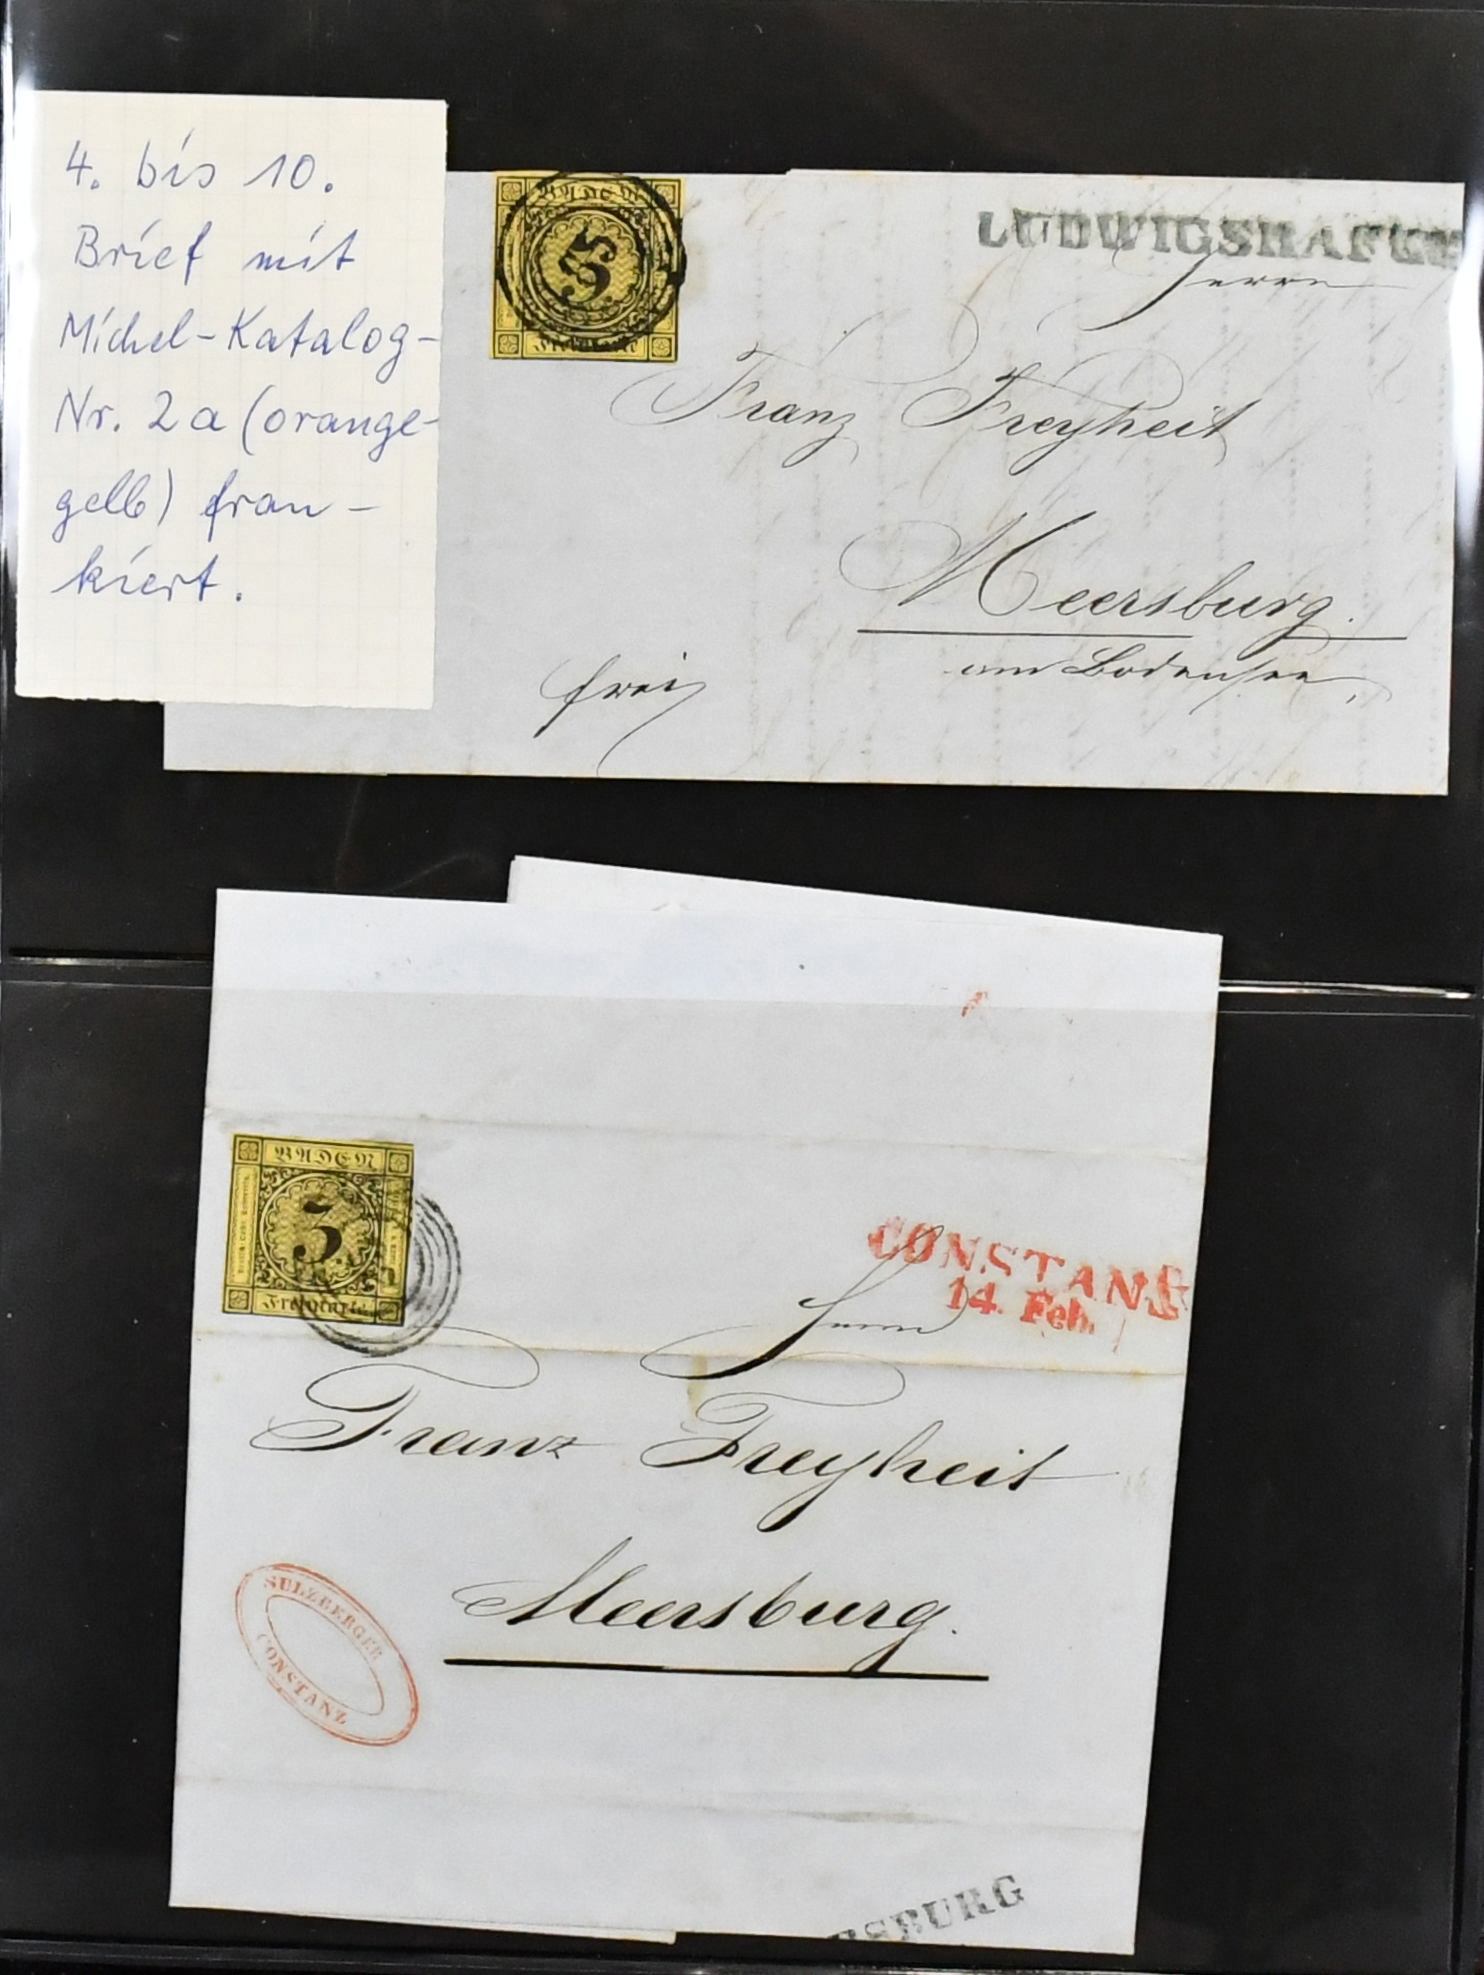 4. bis 10.
Brief mit
Michel-Katalog-
Nr. 2a (orange-
gelb) fran-
kiert.
BADEN
Freimarke
LUDWIGSHAFEN
Herrn
Franz Freyheit
Meersburg.
am Bodensee,
frei
BADEN
3
Freimarke
CONSTANZ
14. Feb.
Herrn
Franz Freyheit
Meersburg.
SULZBERGER
CONSTANZ
RSBURG